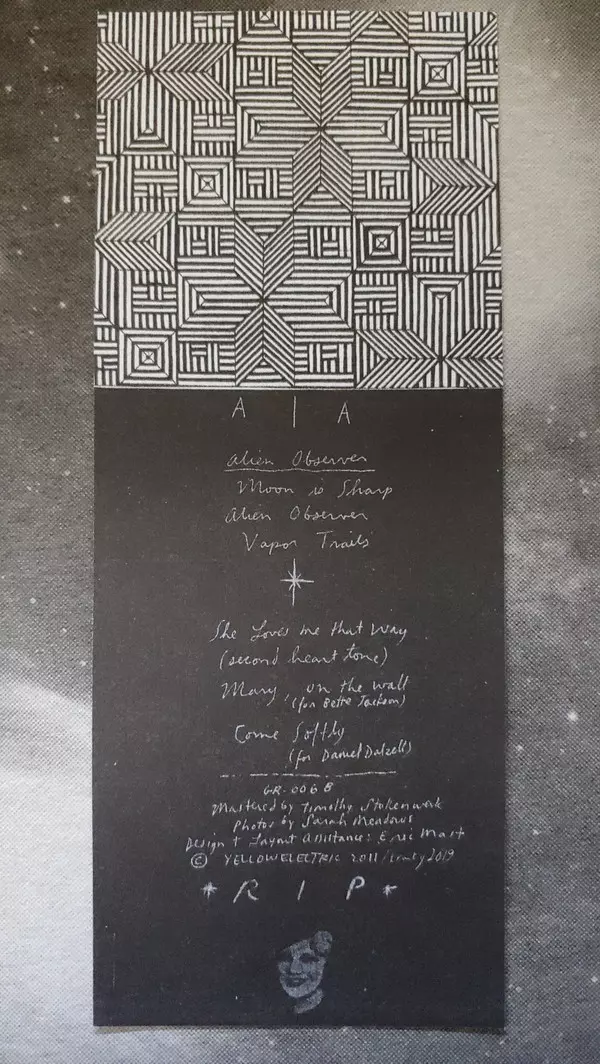 A I A
Alien Observer
Moon is Sharp
Alien Observer
Vapor Trails
She Loves me that Way
(second heart tone)
Mary, on the wall
(for Bette Jackson)
Come Softly
(for Daniel Dalzell)
Mastered by Timothy Stollenwerk
Photos by Sarah Meadows
Design + Layout Assistance: Eric Mast
© YELLOWELECTRIC 2011/ 2019
R I P